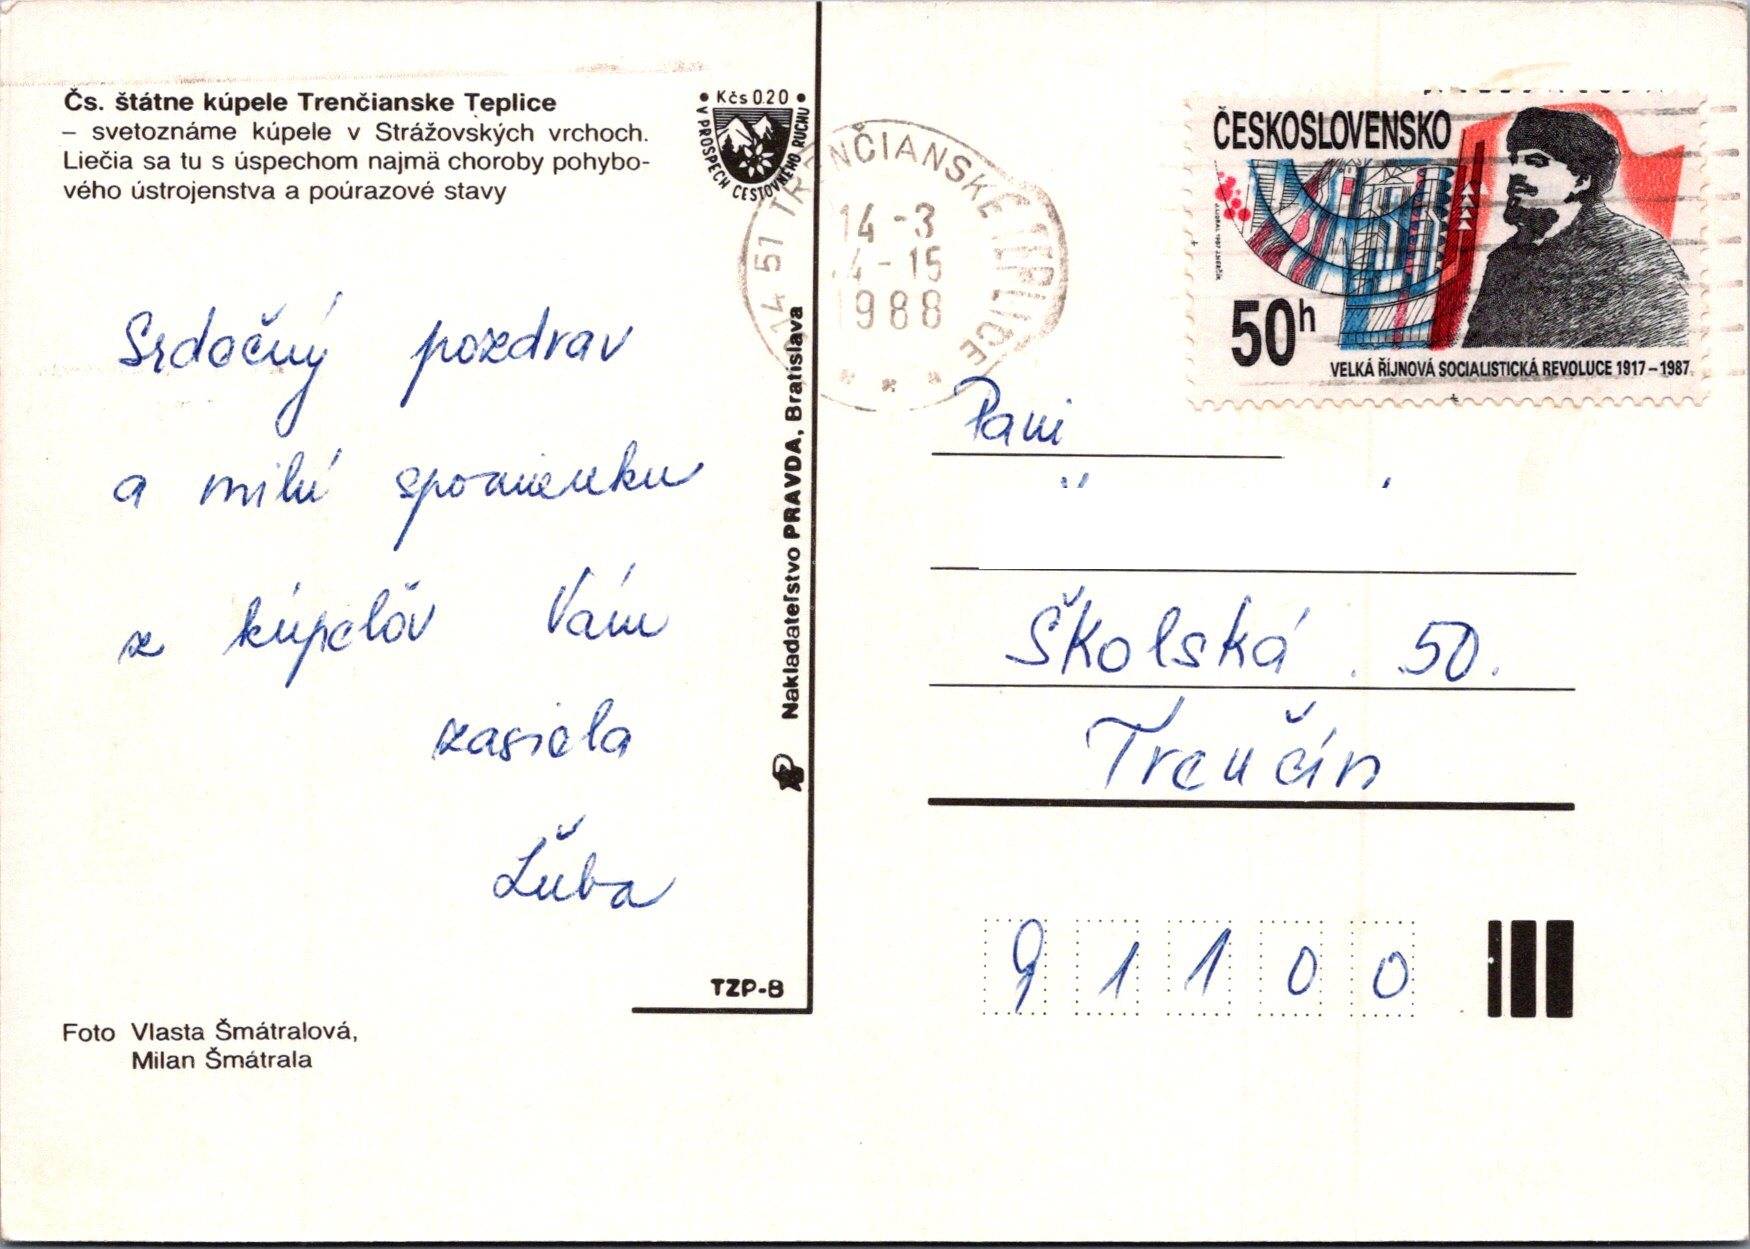 Čs. štátne kúpele Trenčianske Teplice
– svetoznáme kúpele v Strážovských vrchoch.
Liečia sa tu s úspechom najmä choroby pohybo-
vého ústrojenstva a poúrazové stavy
• Kčs 0.20 •
V PROSPECH CESTOVNÉHO RUCHU
914 51 TRENČIANSKE TEPLICE
14 -3
14-15
1988
ČESKOSLOVENSKO
50h
VELKÁ ŘÍJNOVÁ SOCIALISTICKÁ REVOLUCE 1917–1987
Srdečný pozdrav
a milú spomienku
z kúpeľov Vám
zasiela
Ľuba
Nakladateľstvo PRAVDA, Bratislava
TZP-8
Foto Vlasta Šmátralová,
Milan Šmátrala
Pani
Školská 50.
Trenčín
91100